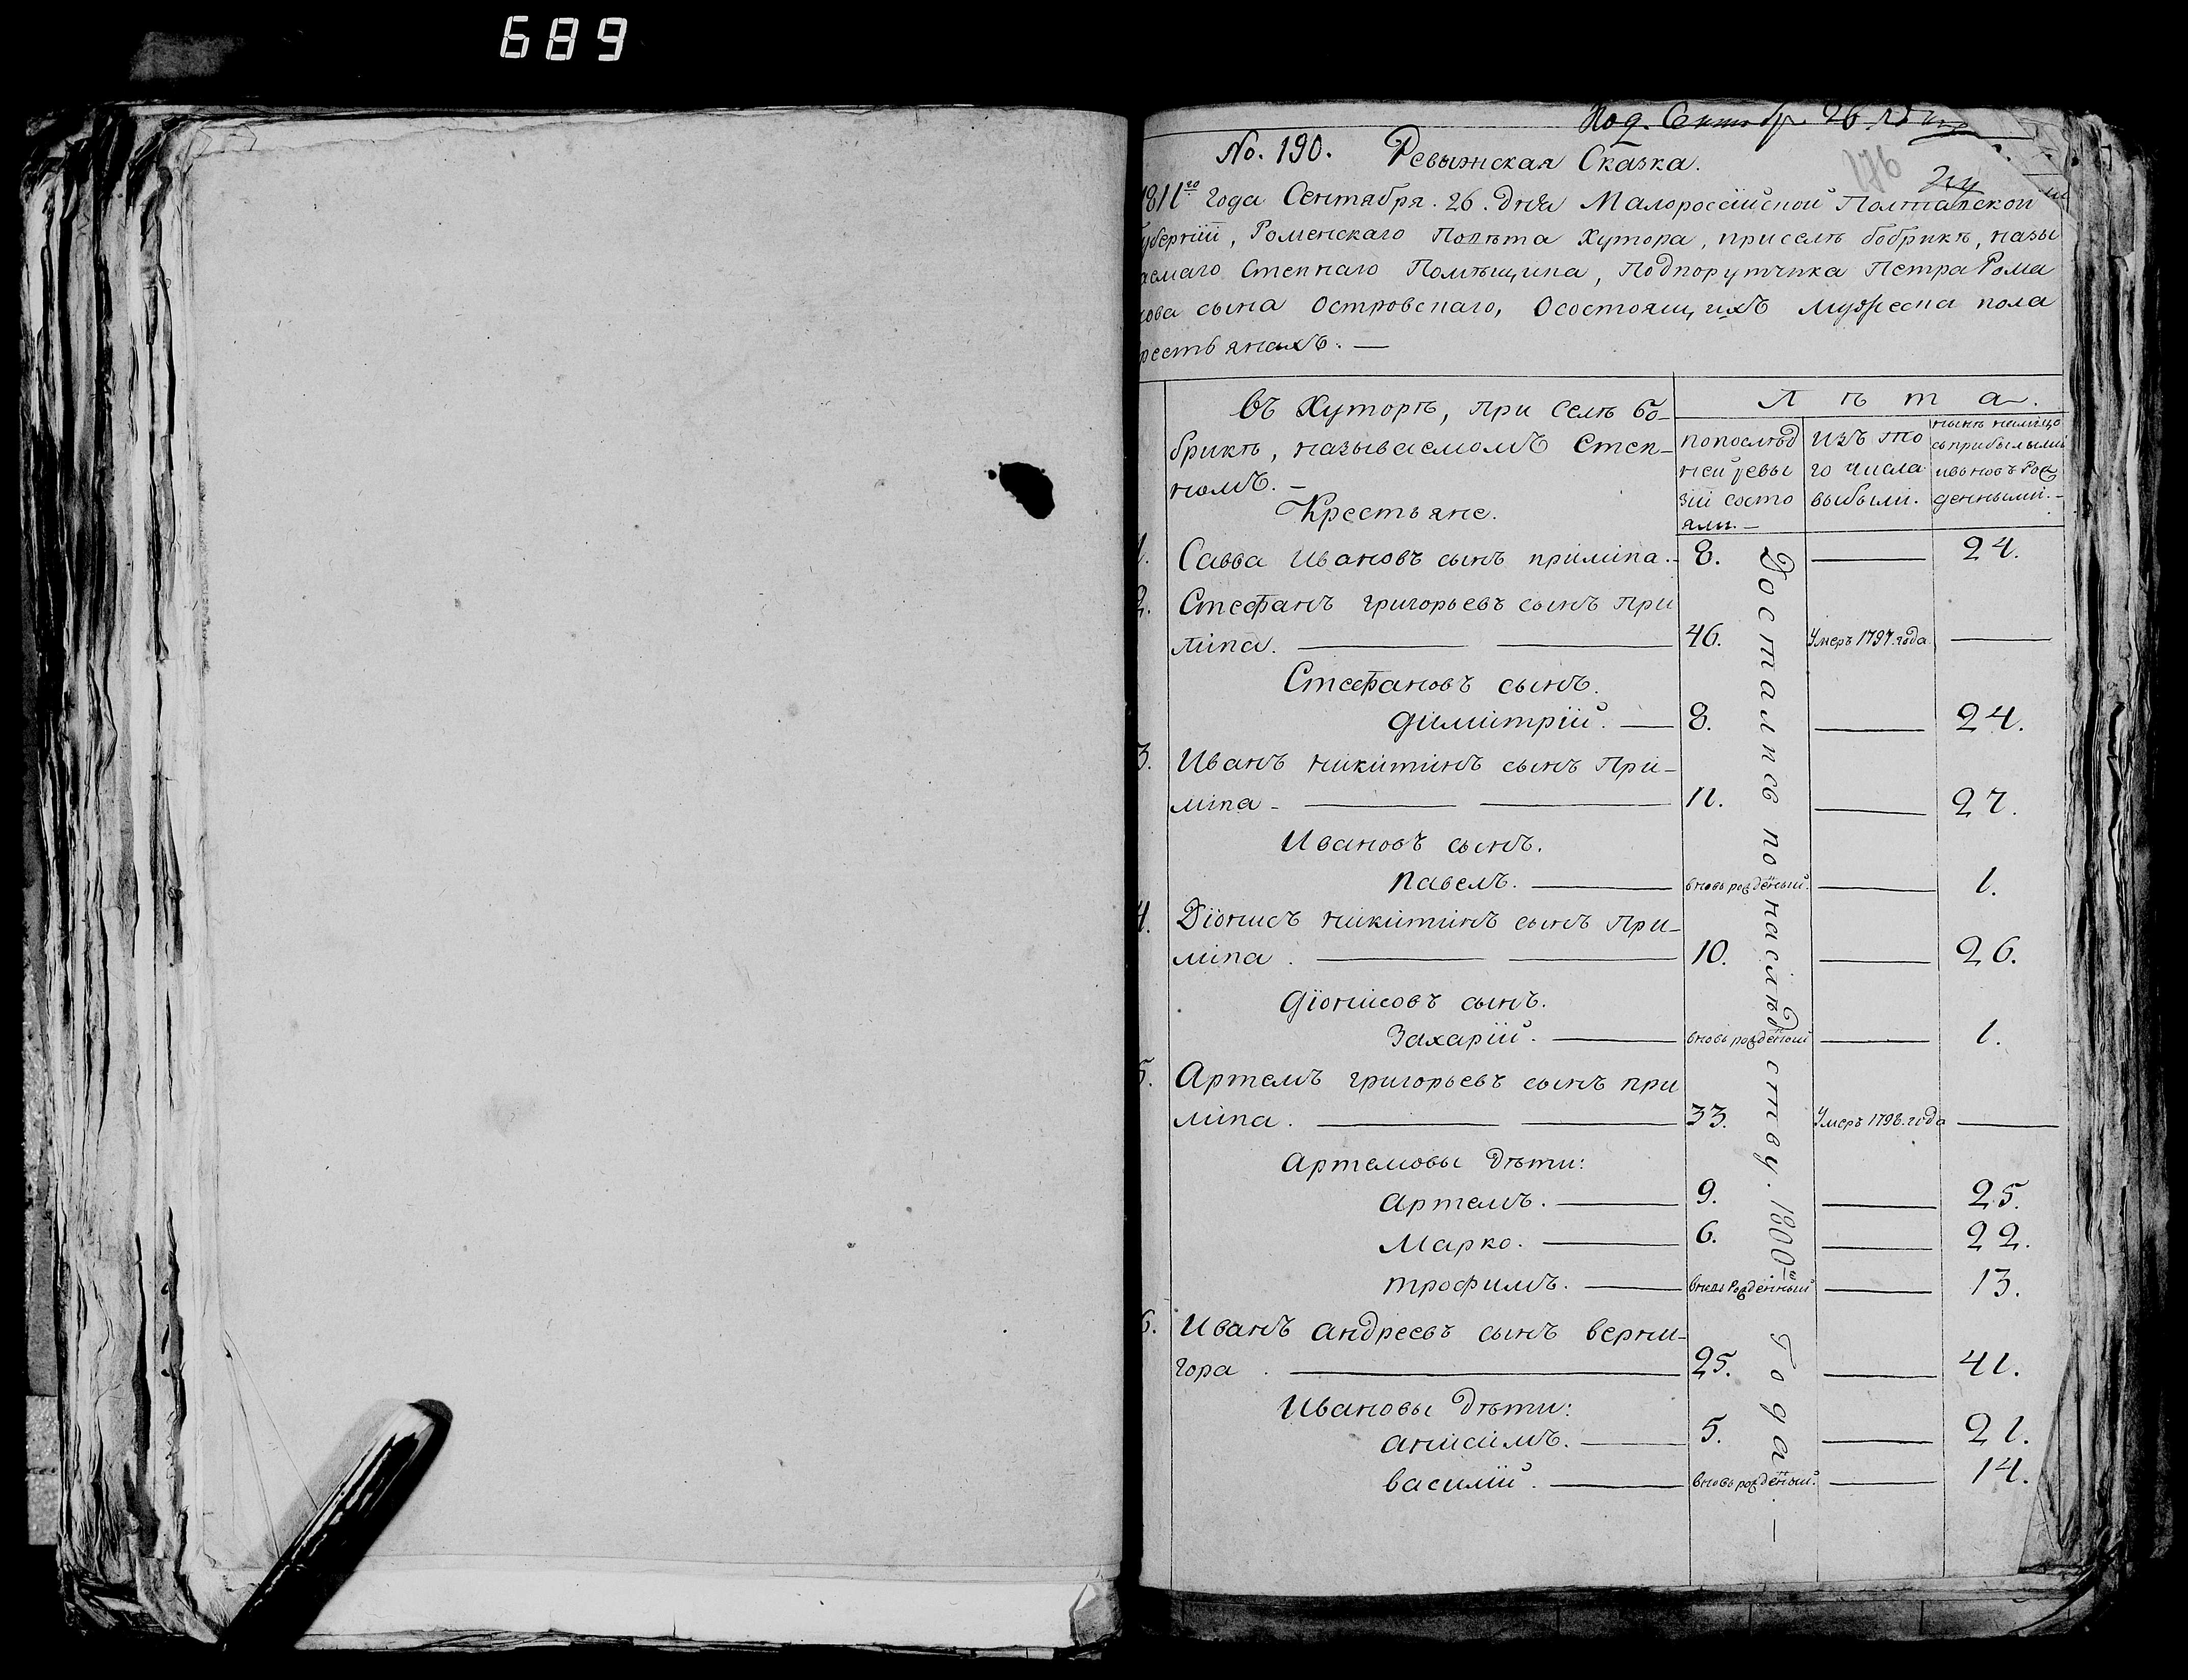 689
Под. Сентябр 26
No. 190. Ревыжская Сказка.
176
1811го года Сентября. 26. дня Малороссійской Полтавской
губерніи, Роменскаго Повѣта Хутора, приселѣ бобрикѣ, назы
аемаго Степнаго Помѣщика, Подпорутчика Петра Рома
нова сына Островскаго, Осостоящихъ мужеска пола
рестьянахъ. —
въ Хуторѣ, при Селѣ Бо-
брикѣ, называемомъ Степ-
номъ. —
Крестьяне.
Лѣта.
попослѣд
ней ревы
зіи состо
яли. —
изъ то
го числа
выбыли.
нынѣ налицо
съприбылыми
ивновъ рож
денными. —
1. Савва Ивановъ сынъ приміпа. 8. — 24.
2. Стефанъ григорьевъ сынъ При
міпа. — 46. Умеръ 1797. года —
Стефановъ сынъ.
димитрій. — 8. — 24.
3. Иванъ никитинъ сынъ При-
міпа — 11. — 27.
Ивановъ сынъ.
Павелъ. — вновь рожденый. — 1.
4. Діонисъ никитинъ сынъ При-
міпа. — 10. — 26.
діонисовъ сынъ.
Захарій. — вновь рожденый — 1.
5. Артемъ григорьевъ сынъ при
міпа. — 33. Умеръ 1798. года —
Артемовы дѣти:
Артемъ. — 9. — 25.
Марко. — 6. — 22.
трофимъ. — вновь рожденный — 13.
6. Иванъ андреевъ сынъ верни-
гора. — 25. — 41.
Ивановы дѣти:
анисимъ. — 5. — 21.
василій. — вновь рожденый. — 14.
Достались по наслѣдству. 1800го года. —